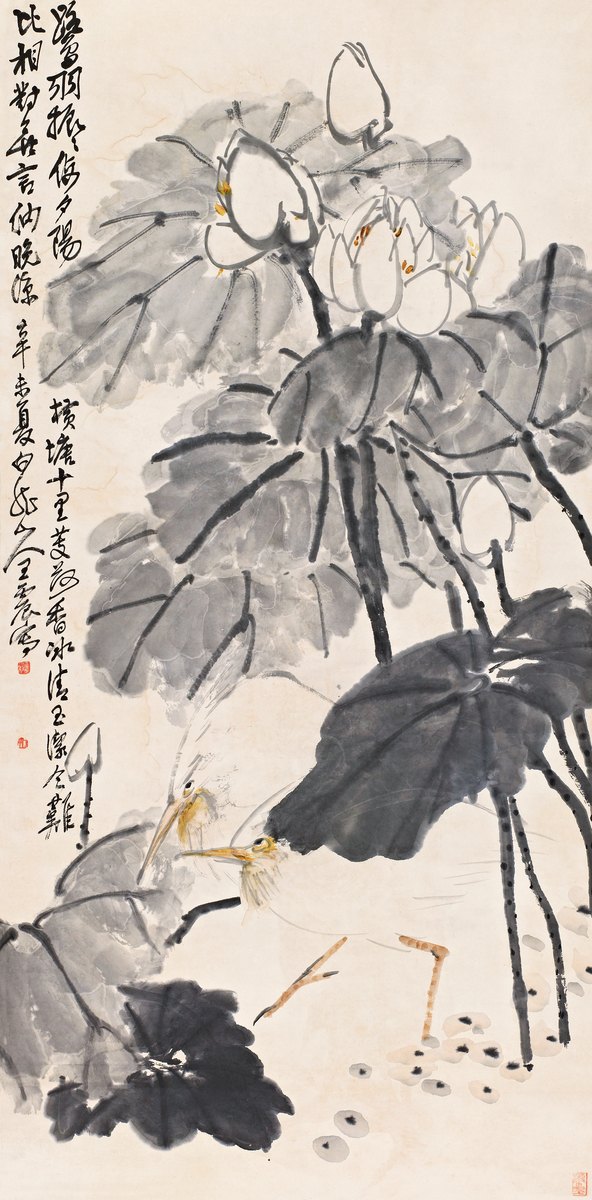 鷺羽振振傍夕陽橫塘十里芰荷香冰清玉潔今難
比相對無言納晚涼辛未夏白龍山人王震寫